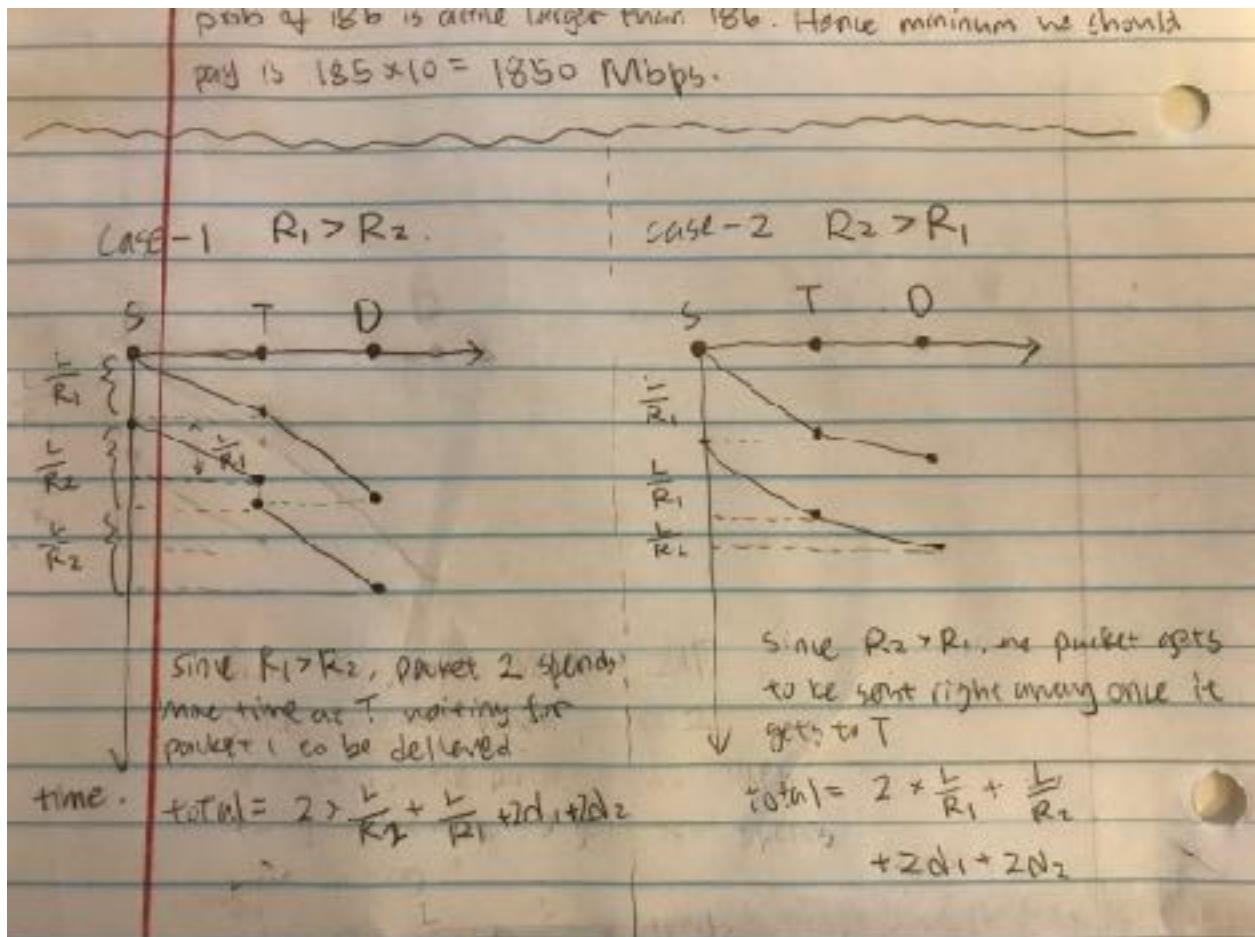 prob of 186 is active larger than 186. Hence mininum we should
pay is 185×10 = 1850 Mbps.
Case-1 R₁ > R₂.
S T D
L/R₁
L/R₁
L/R₂
L/R₂
since R₁>R₂, packet 2 spends
more time at T waiting for
packet 1 to be
time.
total = 2 × L/R₂ + L/R₁ +2d₁+2d₂
case-2 R₂ > R₁
S T D
L/R₁
L/R₁
L/R₂
Since R₂>R₁, packet gets
to be sent right away once it
gets to T
total = 2 × L/R₁ + L/R₂
+2d₁ + 2d₂